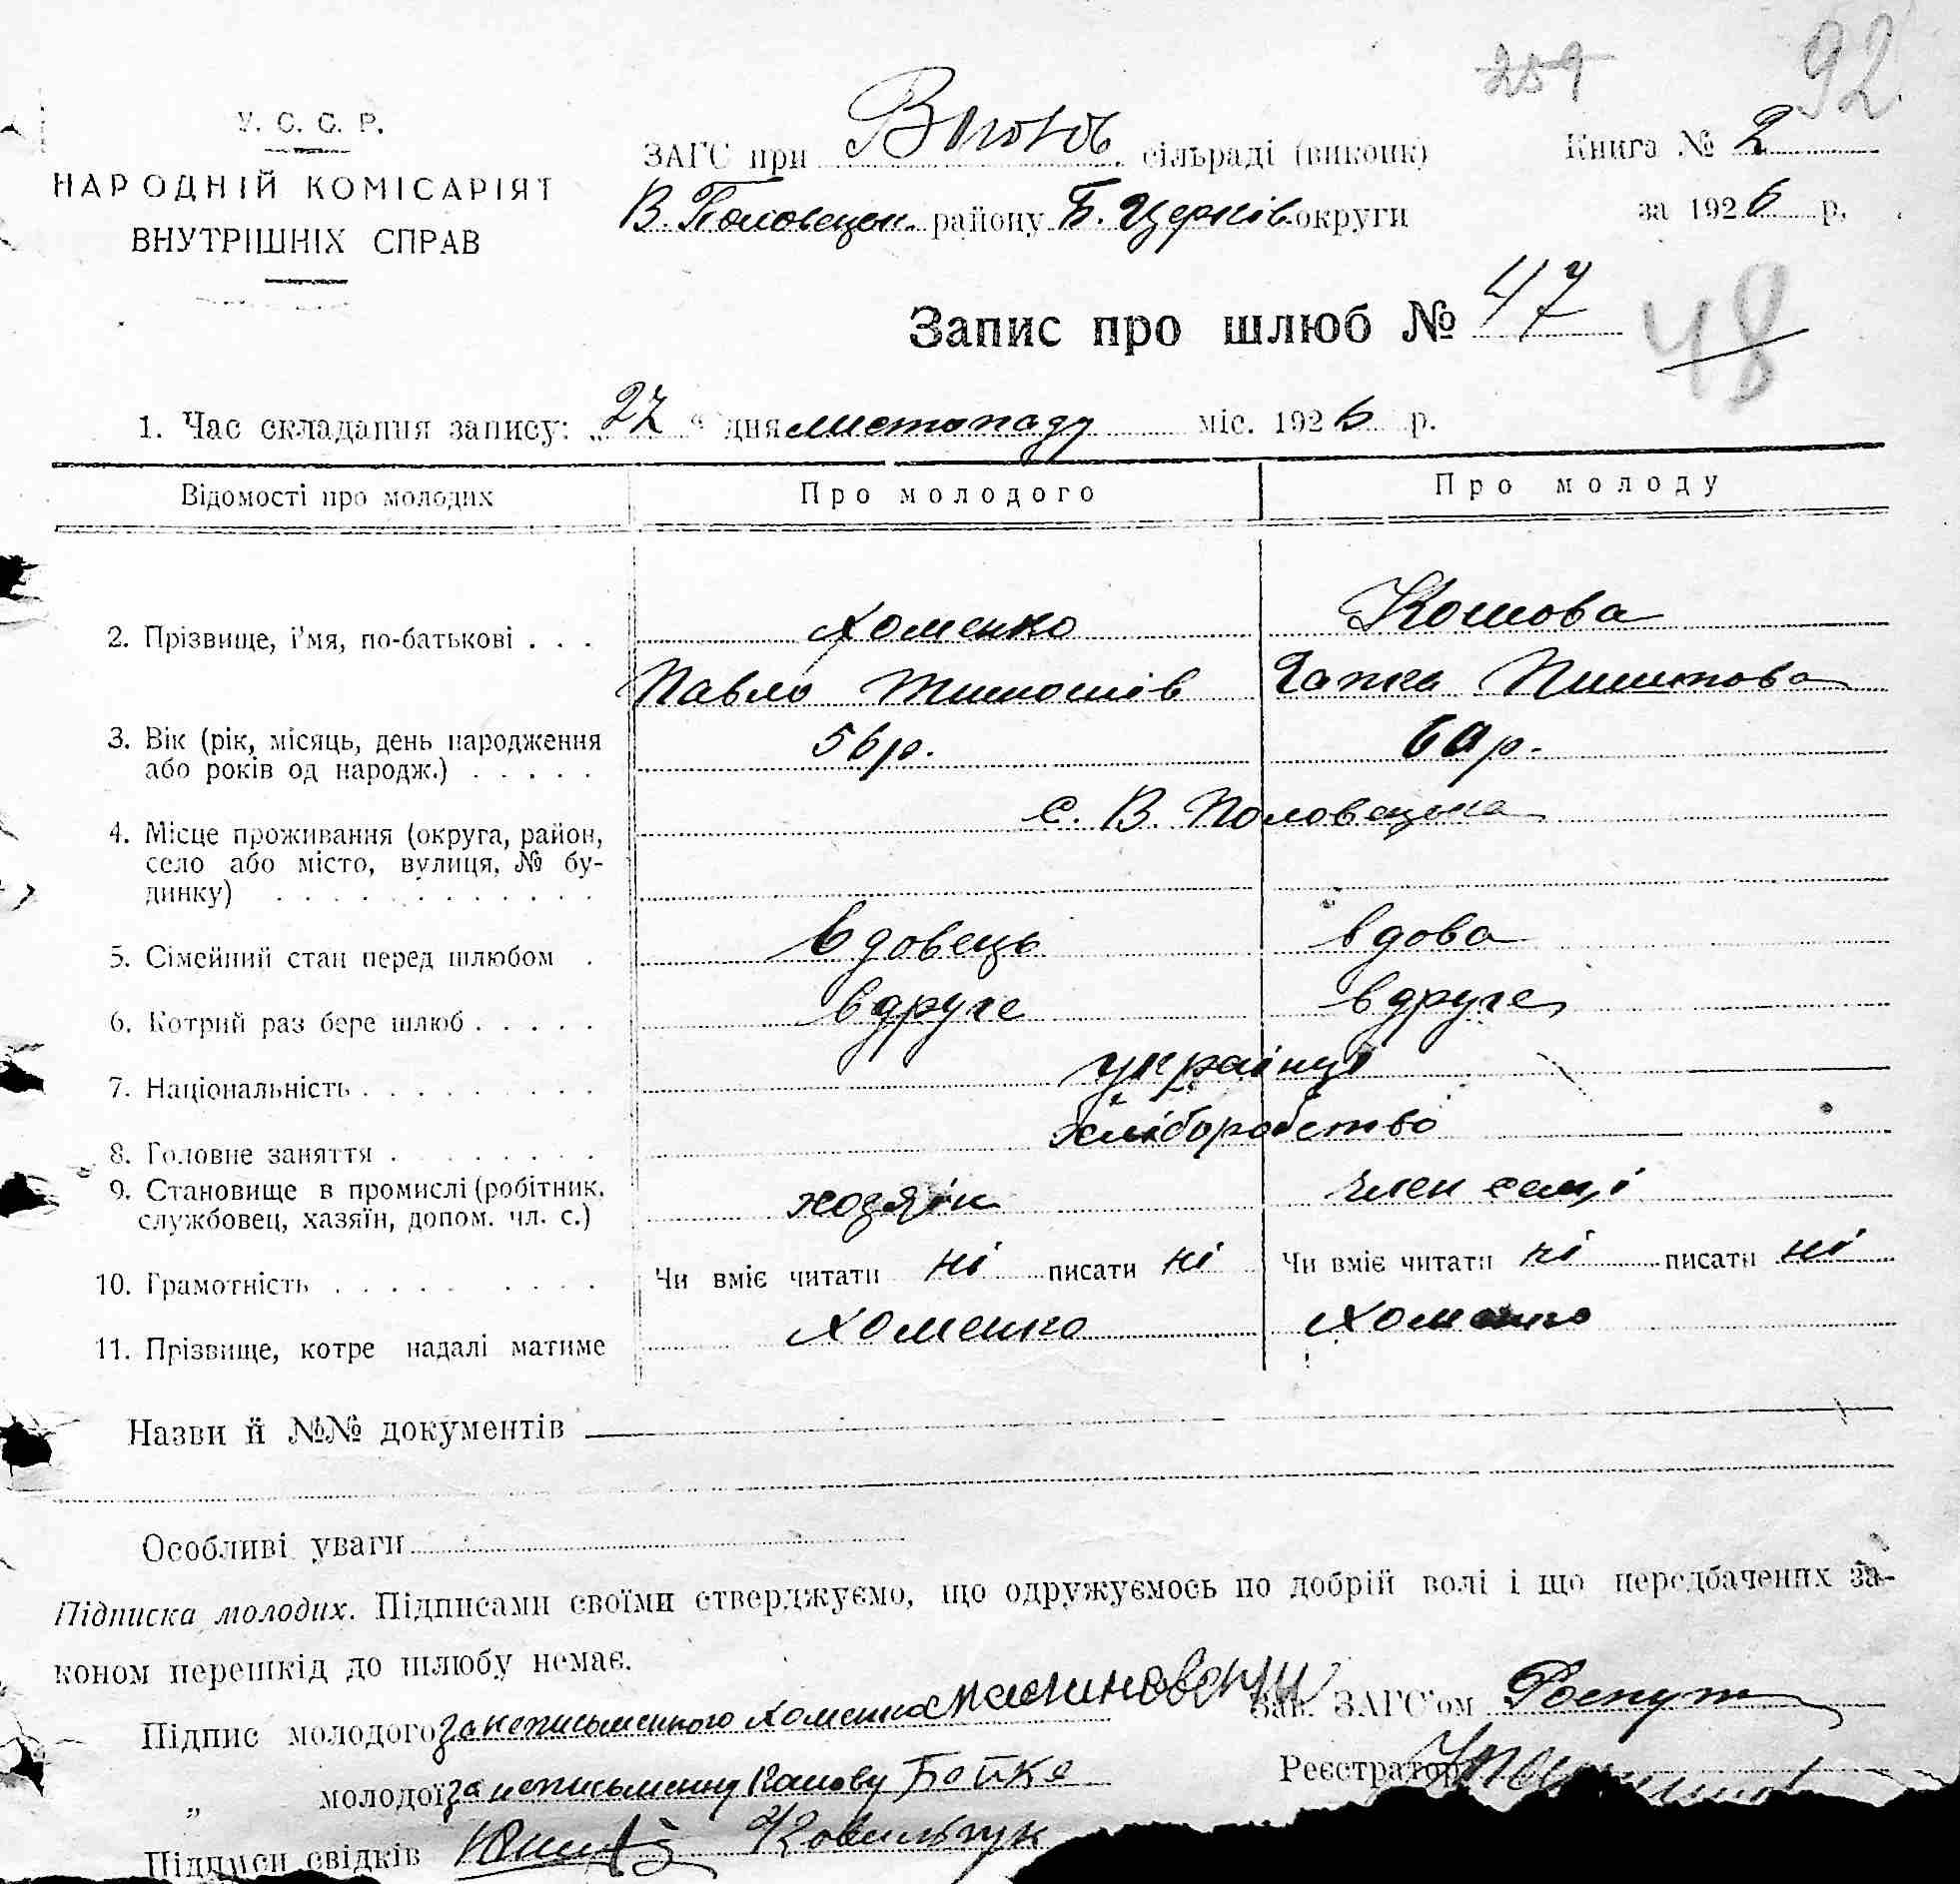 259
92
У. С. С. Р.
НАРОДНІЙ КОМІСАРІЯТ
ВНУТРІШНІХ СПРАВ
ЗАГС при сільраді (виконк)
Книга № 2
В. Половецьк. району Б. Церків округи
за 1926 р.
Запис про шлюб № 47
48
1. Час складання запису: „27 “ дня листопаду міс. 1926 р.
Відомості про молодих Про молодого Про молоду
2. Прізвище, і'мя, по-батькові . . . Хоменко Кошова
Павло Тимошів Гапка
3. Вік (рік, місяць, день народження 56 р. 60 р.
або років од народж.) . . . . .
4. Місце проживання (округа, район, с. В. Половецька
село або місто, вулиця, № бу-
динку) . . . . . . . . . . . .
5. Сімейний стан перед шлюбом . вдовець вдова
6. Котрий раз бере шлюб . . . . . вдруге вдруге
7. Національність . . . . . . . . . українці
8. Головне заняття . . . . . . . . хліборобство
9. Становище в промислі (робітник, хозяїн член семї
службовец, хазяїн, допом. чл. с.)
10. Грамотність . . . . . . . . . Чи вміє читати ні писати ні Чи вміє читати ні писати ні
11. Прізвище, котре надалі матиме Хоменко Хоменко
Назви й №№ документів
Особливі уваги
Підписка молодих. Підписами своїми стверджуємо, що одружуємось по добрій волі і що передбачених за-
коном перешкід до шлюбу немає.
Підпис молодого за неписьменного Хоменка Зав. ЗАГС'ом
„ молодої за неписьменну Кошову Бойко Реєстратор
Підписи свідків Ковальчук